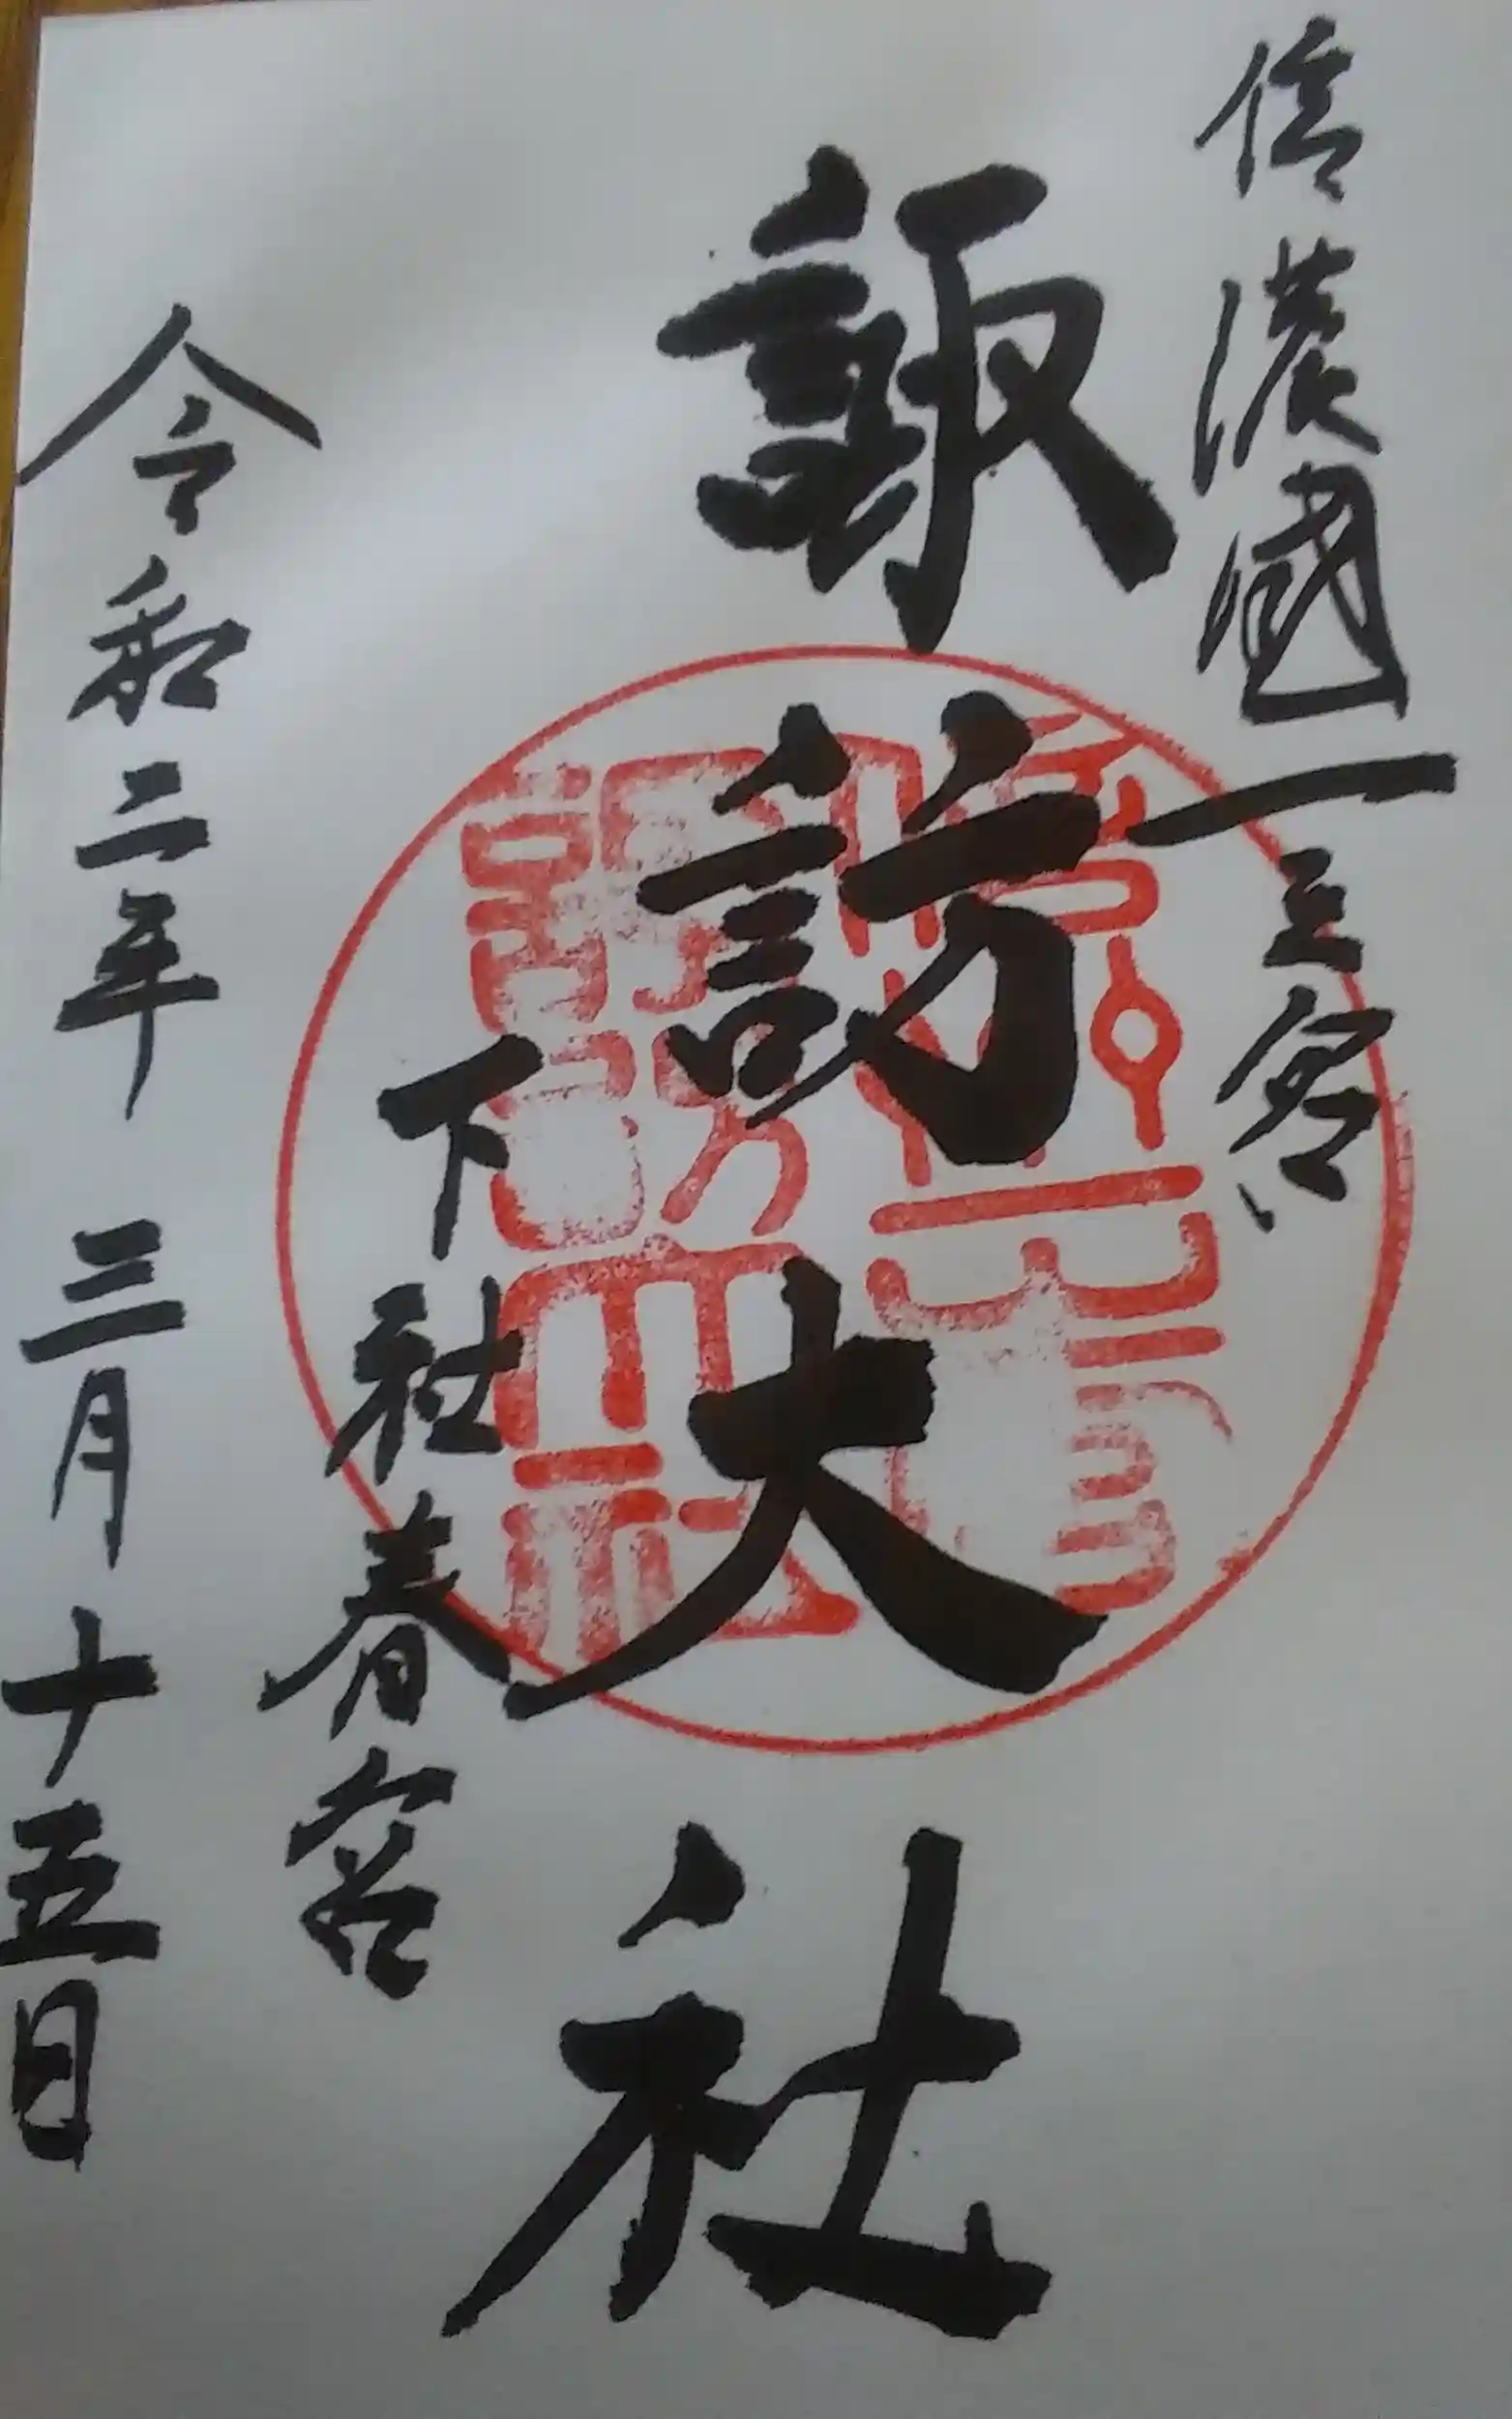 信濃國一之宮
諏訪大社
下社春宮
令和二年三月十五日